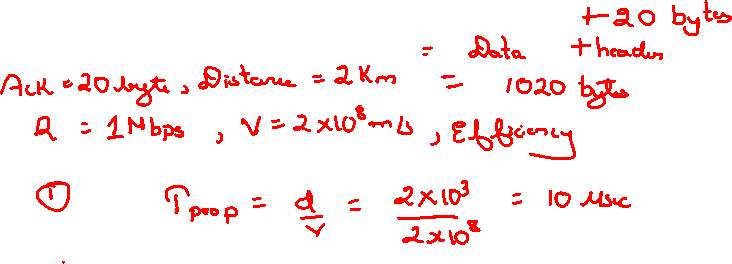 +20 bytes
= Data + header
Ack = 20 byte, Distance = 2 Km = 1020 bytes
R = 1 Mbps, V = 2 × 10⁸ m/s, Efficiency
① Tprop = d/v = 2×10³/2×10⁸ = 10 μsec